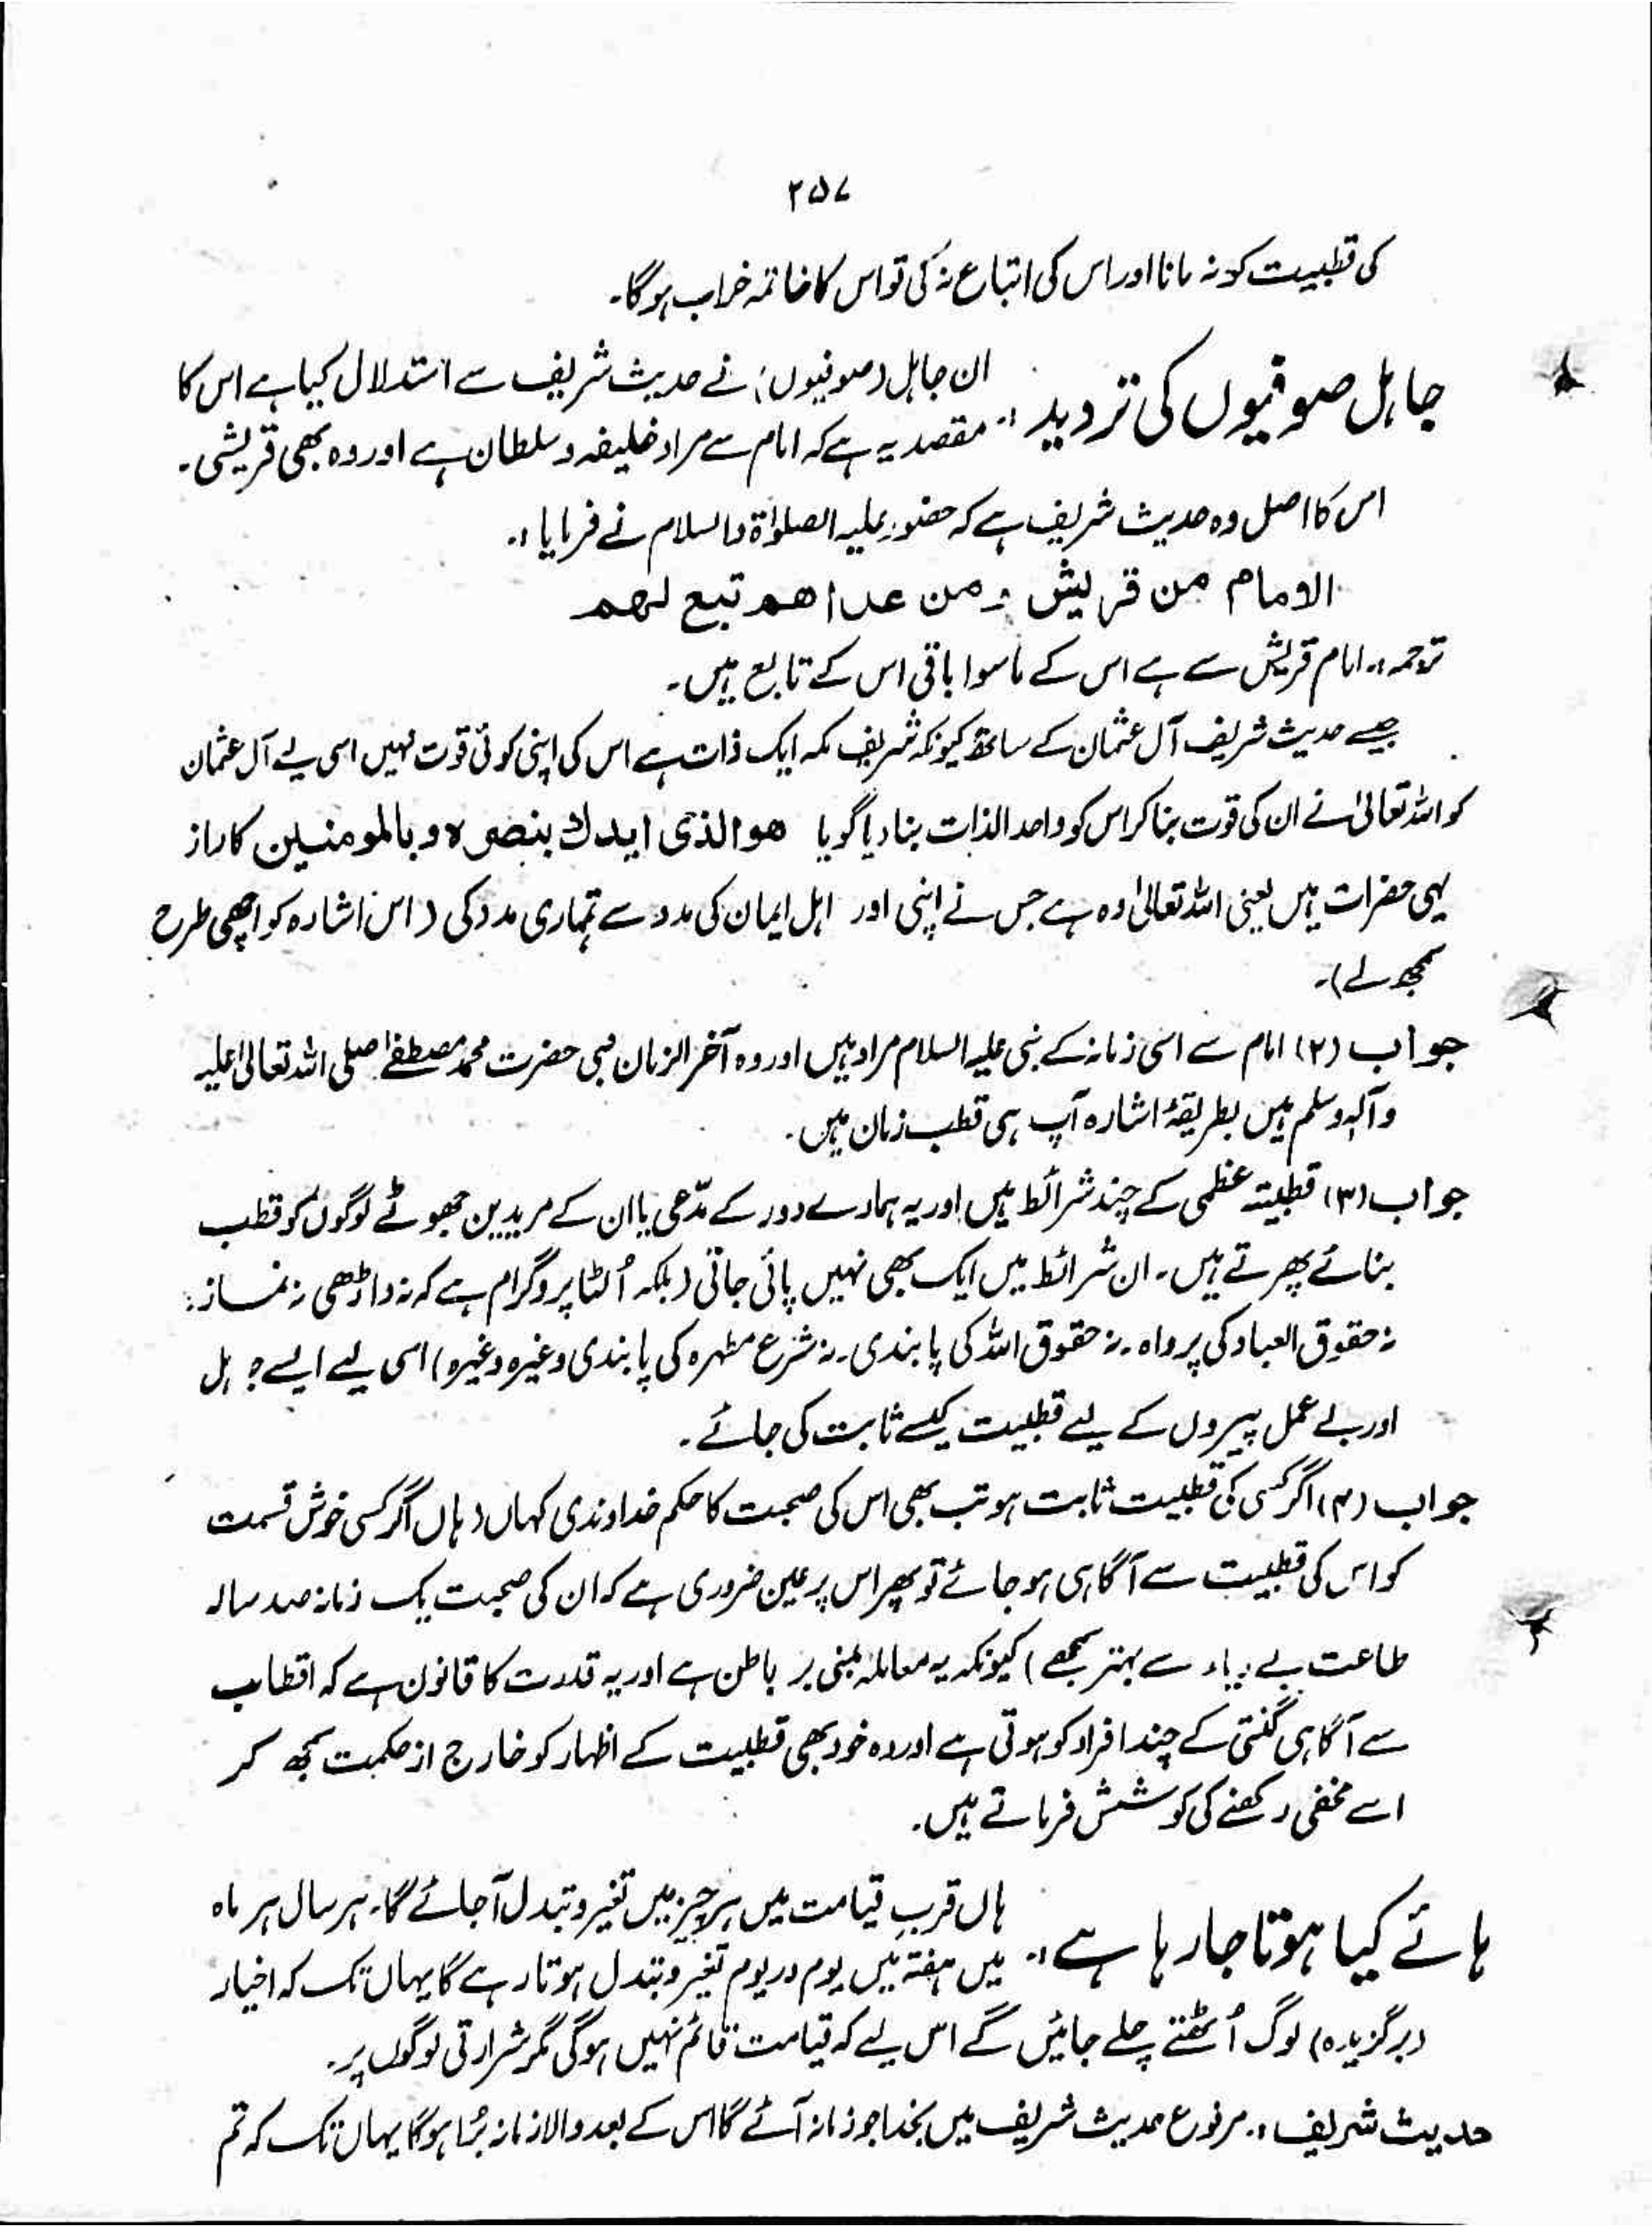 ۲۵۷
کی قطبیت کو نہ مانا اور اس کی اتباع نہ کی تو اس کا خاتمہ خراب ہوگا۔
جاہل صوفیوں کی تردید :۔ ان جاہل (صوفیوں) نے حدیث شریف سے استدلال کیا ہے اس کا
مقصد یہ ہے کہ امام سے مراد خلیفہ و سلطان ہے اور وہ بھی قریشی۔
اس کا اصل وہ حدیث شریف ہے کہ حضور علیہ الصلوٰۃ والسلام نے فرمایا :۔
الامام من قریش ومن عداهم تبع لهم
ترجمہ :۔ امام قریش سے ہے اس کے ماسوا باقی اس کے تابع ہیں۔
جیسے حدیث شریف آل عثمان کے ساتھ کیونکہ شریف مکہ ایک ذات ہے اس کی اپنی کوئی قوت نہیں اسی لیے آل عثمان
کو اللہ تعالیٰ نے ان کی قوت بنا کر اس کو واحد الذات بنا دیا گویا هو الذی ایدك بنصره وبالمومنین کا راز
یہی حضرات ہیں یعنی اللہ تعالیٰ وہ ہے جس نے اپنی اور اہل ایمان کی مدد سے تمہاری مدد کی (اس اشارہ کو اچھی طرح
سمجھ لے)۔
جواب (۲) امام سے اسی زمانہ کے نبی علیہ السلام مراد ہیں اور وہ آخر الزمان نبی حضرت محمد مصطفےٰ صلی اللہ تعالیٰ علیہ
وآلہ وسلم ہیں بطریقۂ اشارہ آپ ہی قطب زمان ہیں۔
جواب (۳) قطبیتہ عظمی کے چند شرائط ہیں اور یہ ہمارے دور کے مدّعی یا ان کے مریدین جھوٹے لوگوں کو قطب
بنائے پھرتے ہیں۔ ان شرائط میں ایک بھی نہیں پائی جاتی (بلکہ اُلٹا پروگرام ہے کہ نہ داڑھی نہ نماز۔
نہ حقوق العباد کی پرواہ۔ نہ حقوق اللہ کی پابندی۔ نہ شرع مطہرہ کی پابندی وغیرہ وغیرہ) اسی لیے ایسے جاہل
اور بے عمل پیروں کے لیے قطبیت کیسے ثابت کی جائے۔
جواب (۴) اگر کسی کی قطبیت ثابت ہو تب بھی اس کی صحبت کا حکم خداوندی کہاں (ہاں اگر کسی خوش قسمت
کو اس کی قطبیت سے آگاہی ہو جائے تو پھر اس پر عین ضروری ہے کہ ان کی صحبت یک زمانہ صد سالہ
طاعت بے ریاء سے بہتر سمجھے) کیونکہ یہ معاملہ مبنی بر باطن ہے اور یہ قدرت کا قانون ہے کہ اقطاب
سے آگاہی گنتی کے چند افراد کو ہوتی ہے اور وہ خود بھی قطبیت کے اظہار کو خارج از حکمت سمجھ کر
اسے مخفی رکھنے کی کوشش فرماتے ہیں۔
ہائے کیا ہوتا جا رہا ہے :۔ ہاں قرب قیامت میں ہر چیز میں تغیر و تبدل آجائے گا۔ ہر سال ہر ماہ
میں ہفتہ میں یوم در یوم تغیر و تبدل ہوتا رہے گا یہاں تک کہ اخیار
(برگزیدہ) لوگ اُٹھتے چلے جائیں گے اس لیے کہ قیامت قائم نہیں ہوگی مگر شرارتی لوگوں پر۔
حدیث شریف :۔ مرفوع حدیث شریف میں بخدا جو زمانہ آئے گا اس کے بعد والا زمانہ بُرا ہوگا یہاں تک کہ تم